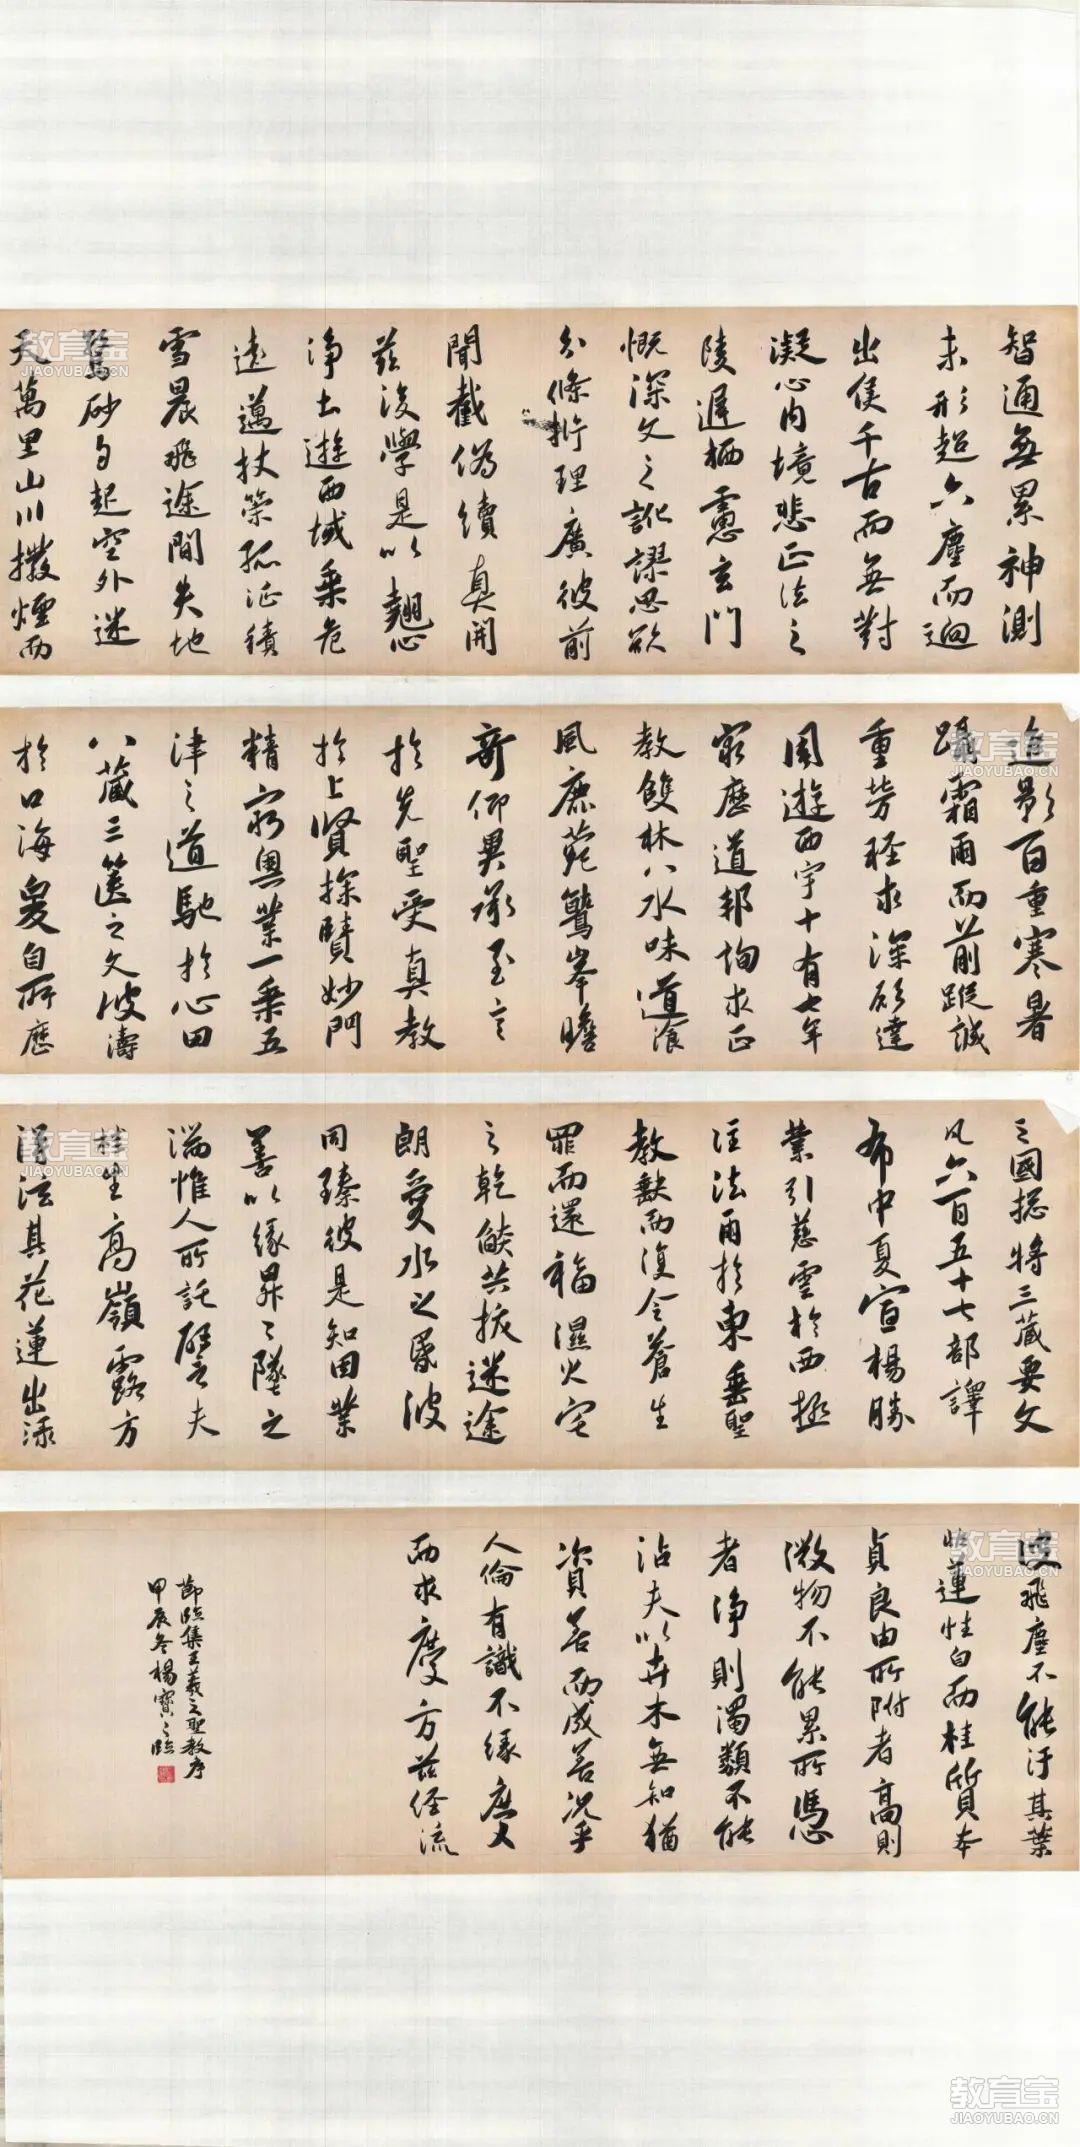 智通無累神測
未形超六塵而迥
出隻千古而無對
凝心內境悲正法之
陵遲栖慮玄門
慨深文之訛謬思欲
分條析理廣彼前
聞截偽續真開
茲後學是以翹心
淨土遊西域乘危
遠邁杖策孤征積
雪晨飛途間失地
驚砂夕起空外迷
天萬里山川撥煙而
進影百重寒暑
躡霜雨而前蹤誠
重勞輕求深願達
周遊西宇十有七年
窮歷道邦詢求正
教雙林八水味道飡
風鹿菀鷲峯瞻
奇仰異承至言
於先聖受真教
於上賢探賾妙門
精窮奧業一乘五
津之道馳於心田
八藏三篋之文波濤
於口海爰自所歷
之國總將三藏要文
凡六百五十七部譯
布中夏宣楊勝
業引慈雲於西極
注法雨於東垂聖
教缺而復全蒼生
罪而還福濕火宅
之乾燄共拔迷途
朗愛水之昏波
同臻彼是知因業
善以緣昇〻墜之
端惟人所託譬之夫
桂生高嶺露方
得泫其花蓮出淥
波飛塵不能汙其葉
非蓮性自而桂質本
貞良由所附者高則
微物不能累所憑
者淨則濁類不能
沾夫以卉木無知猶
資善而成善況乎
人倫有識不緣慶又
而求慶方茲經流
節臨集王羲之聖教序
甲辰冬楊寶〻臨
教育宝
JIAOYUBAO.CN
教育宝
JIAOYUBAO.CN
教育宝
JIAOYUBAO.CN
教育宝
JIAOYUBAO.CN
教育宝
JIAOYUBAO.CN